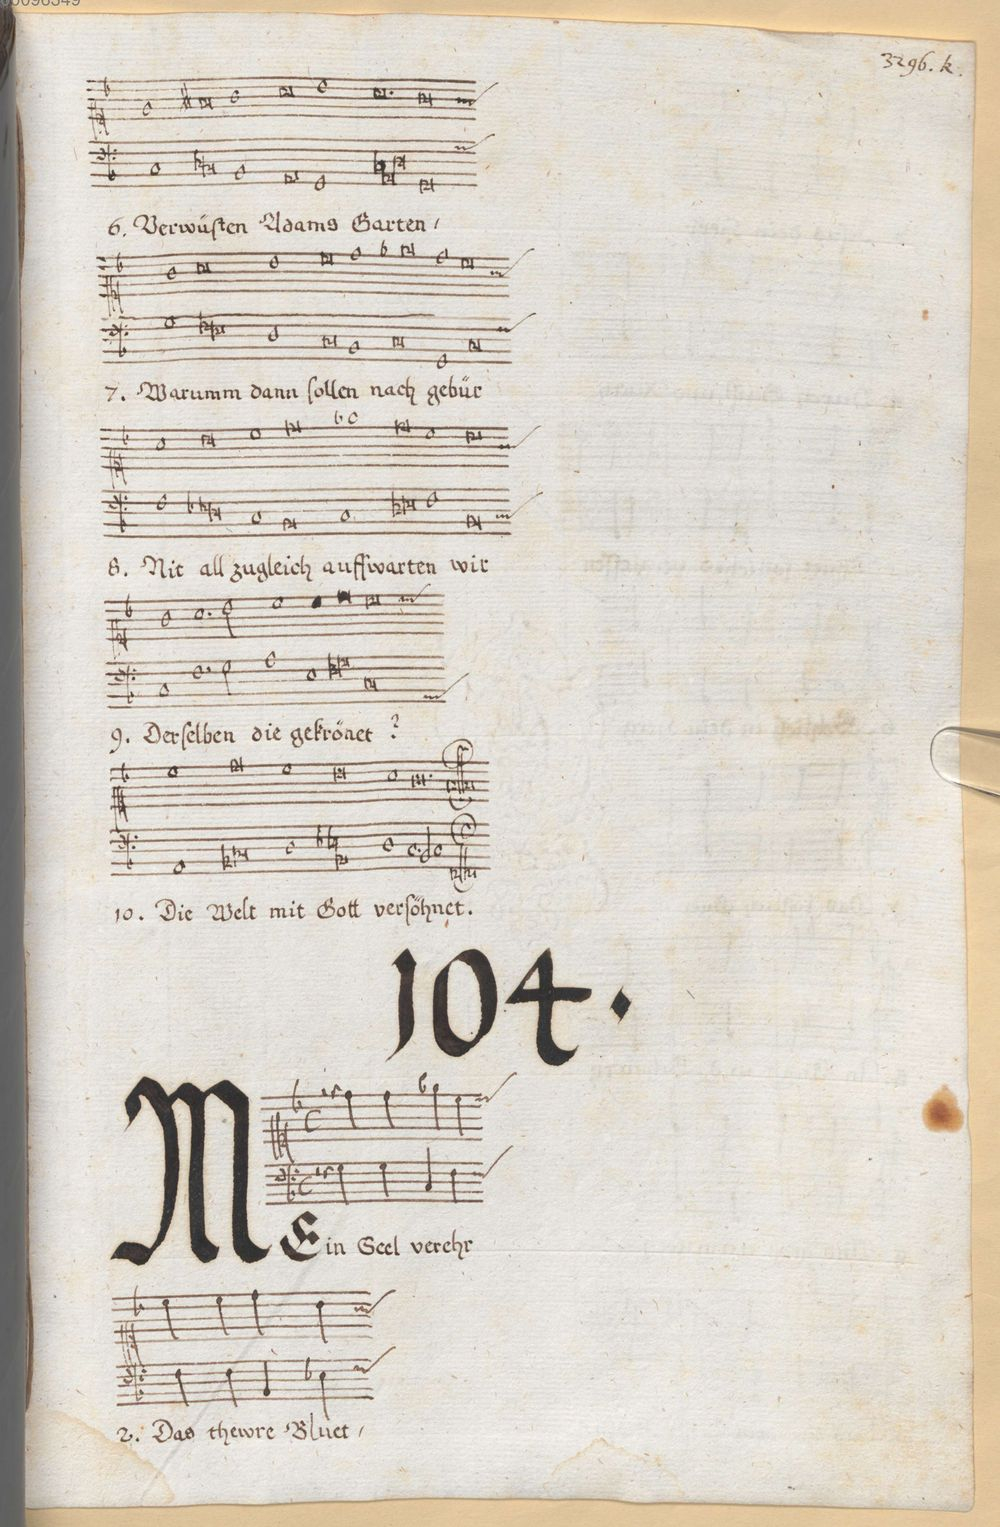 3296. k.
6. Verwüsten Adams Garten/
7. Warumm dann sollen nach gebür
8. Nit all zugleich auffwarten wir
9. Derselben die gekrönet?
10. Die Welt mit Gott versöhnet.
104.
MEin Seel verehr
2. Das thewre Bluet/